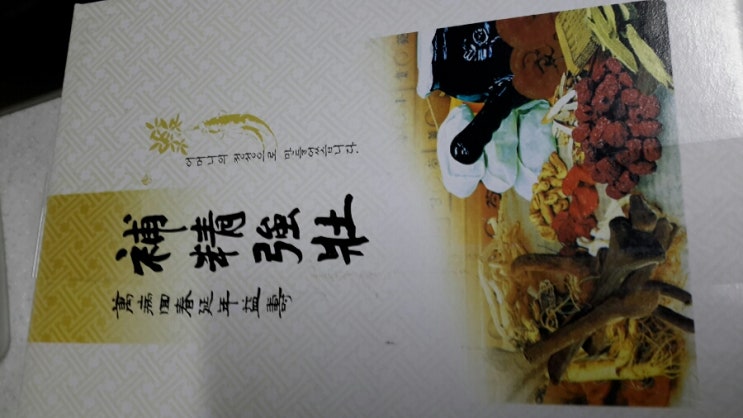 어머니의 정성으로 만들었습니다.
補精強壯
萬病回春延年益壽